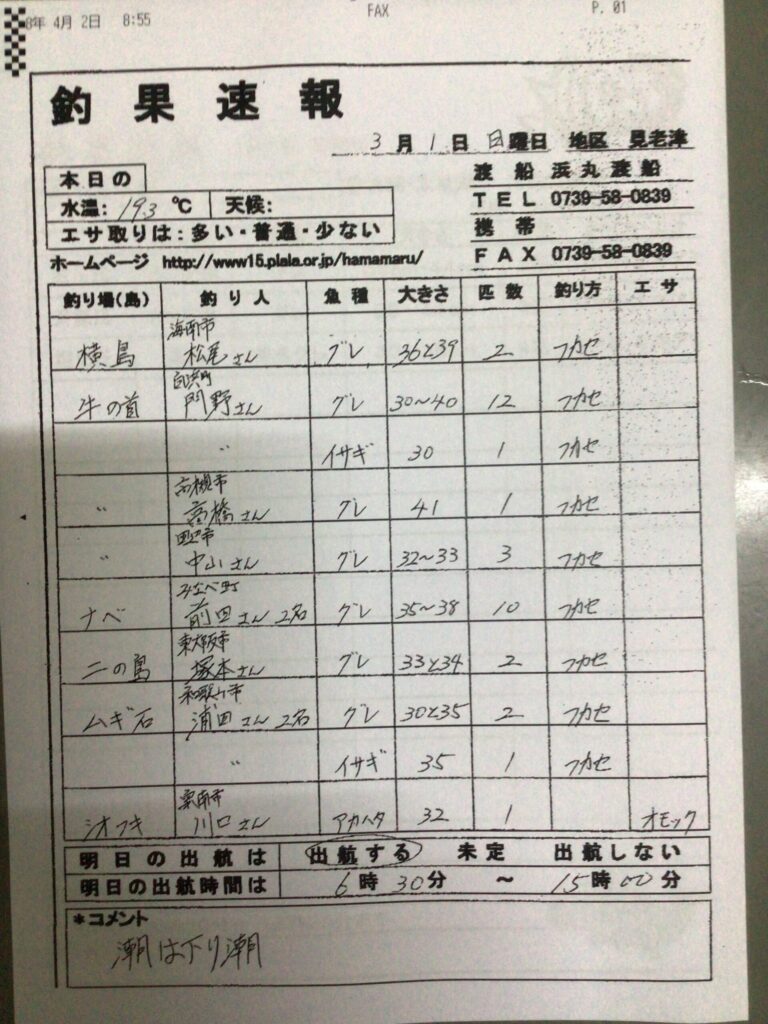 8年 4月 2日 8:55 FAX P. 01
釣果速報
3月1日 日曜日 地区 見老津
渡船 浜丸渡船
本日の
水温: 19.3 ℃ 天候:
TEL 0739-58-0839
携帯
エサ取りは:多い・普通・少ない
FAX 0739-58-0839
ホームページ http://www15.plala.or.jp/hamamaru/
釣り場(島) 釣り人 魚種 大きさ 匹数 釣り方 エサ
海南市
横島 松尾さん グレ 36と39 2 フカセ
白浜町
牛の首 門野さん グレ 30~40 12 フカセ
〃 イサギ 30 1 フカセ
高槻市
〃 高橋さん グレ 41 1 フカセ
田辺市
〃 中山さん グレ 32~33 3 フカセ
みなべ町
ナベ 前田さん 2名 グレ 35~38 10 フカセ
東大阪市
二の島 塚本さん グレ 33と34 2 フカセ
和歌山市
ムギ石 浦田さん 2名 グレ 30と35 2 フカセ
〃 イサギ 35 1 フカセ
シオフキ 川口さん アカハタ 32 1 オモック
明日の出航は 出航する 未定 出航しない
明日の出航時間は 6時30分 ~ 15時00分
*コメント
潮は下り潮